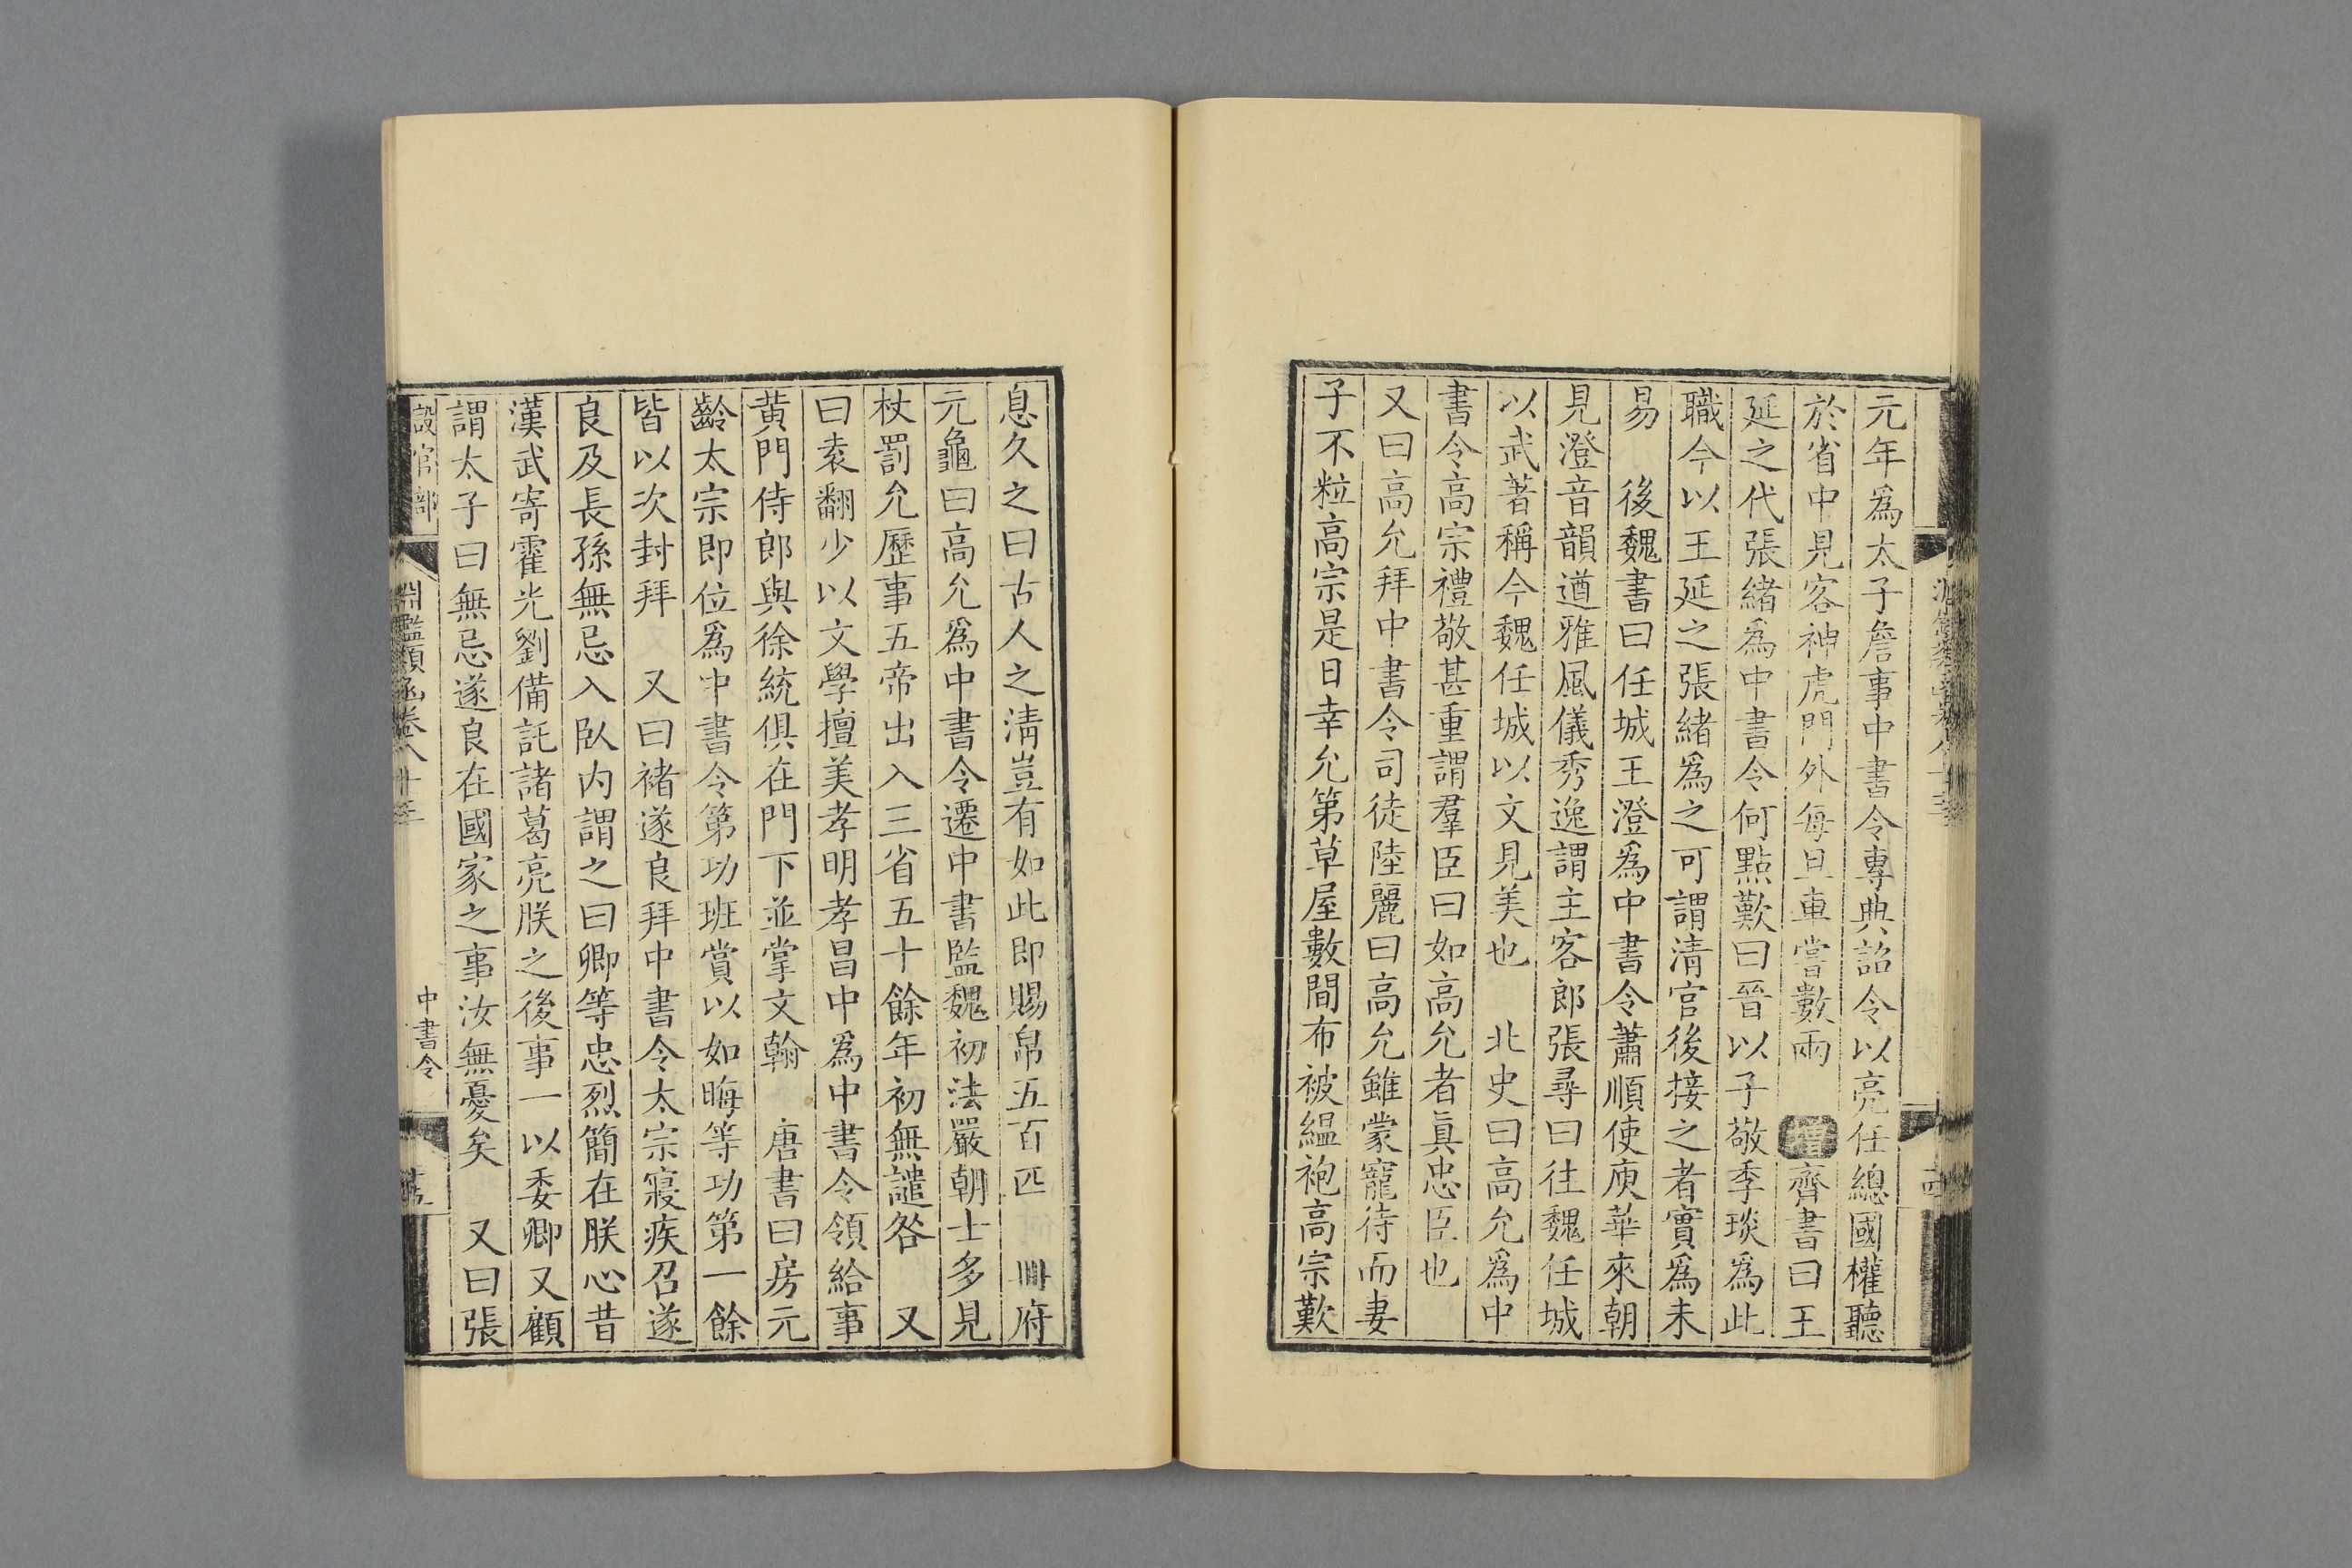 元年爲太子詹事中書令專典詔令以亮任總國權聽
於省中見客神虎門外每旦車嘗數兩 增 齊書曰王
延之代張緒爲中書令何點歎曰晉以子敬季琰爲此
職今以王延之張緒爲之可謂清官後接之者實爲未
易 後魏書曰任城王澄爲中書令蕭順使庾華來朝
見澄音韻遒雅風儀秀逸謂主客郎張尋曰往魏任城
以武著稱今魏任城以文見美也 北史曰高允爲中
書令高宗禮敬甚重謂羣臣曰如高允者眞忠臣也
又曰高允拜中書令司徒陸麗曰高允雖蒙寵待而妻
子不粒高宗是日幸允第草屋數間布被緼袍高宗歎
息久之曰古人之清豈有如此即賜帛五百匹 冊府
元龜曰高允爲中書令遷中書監魏初法嚴朝士多見
杖罰允歷事五帝出入三省五十餘年初無譴咎 又
曰袁翻少以文學擅美孝明孝昌中爲中書令領給事
黄門侍郎與徐統俱在門下並掌文翰 唐書曰房元
齡太宗即位爲中書令第功班賞以如晦等功第一餘
皆以次封拜 又曰褚遂良拜中書令太宗寢疾召遂
良及長孫無忌入臥内謂之曰卿等忠烈簡在朕心昔
漢武寄霍光劉備託諸葛亮朕之後事一以委卿又顧
謂太子曰無忌遂良在國家之事汝無憂矣 又曰張
設官部 淵鑑類函卷八十五 中書令